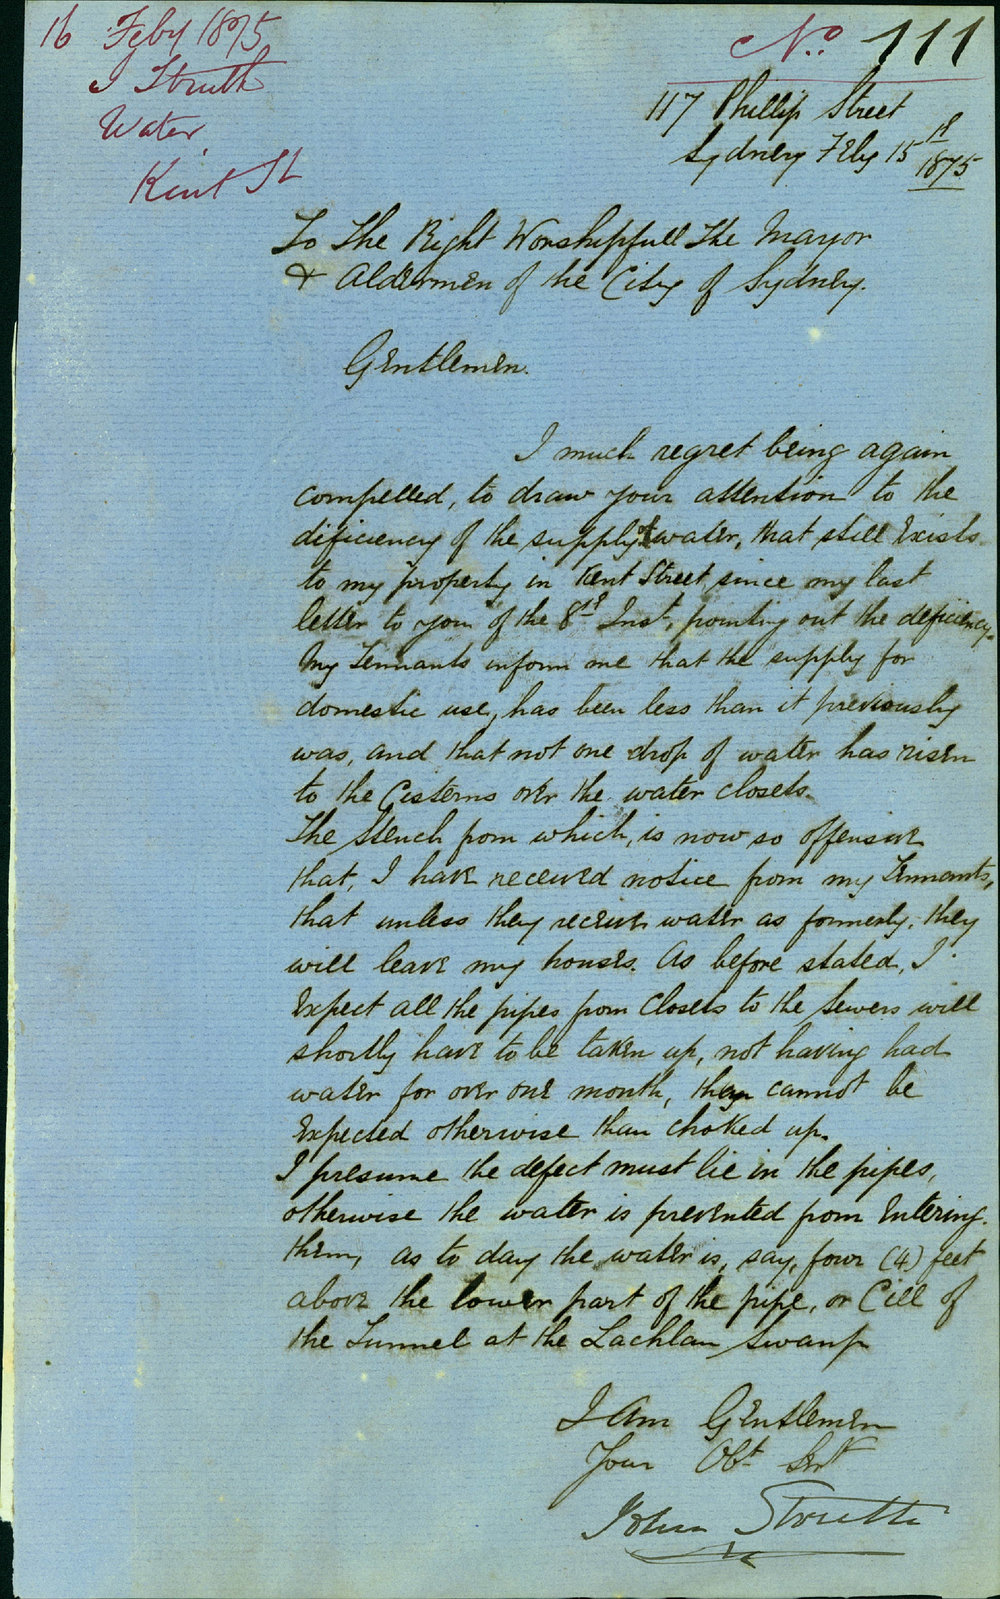 16 Feby 1875
J Struth
Water
Kent St
No. 111
117 Phillip Street
Sydney Feby 15th 1875
To The Right Worshipfull The Mayor
& Aldermen of the City of Sydney.
Gentlemen.
I much regret being again
compelled, to draw your attention to the
dificiency of the supply of water, that still Exists
to my property in Kent Street, since my last
letter to you of the 8th Inst, pointing out the deficiency.
My Tennants inform me that the supply for
domestic use, has been less than it previously
was, and that not one drop of water has risen
to the Cisterns over the water closets.
The Stench from which, is now so offensive
that, I have received notice from my Tennants,
that unless they receive water as formerly, they
will leave my houses. As before stated, I
Expect all the pipes from Closets to the Sewers will
shortly have to be taken up, not having had
water for over one month, they cannot be
Expected otherwise than choked up.
I presume the defect must lie in the pipes,
otherwise the water is prevented from Entering
them, as to day the water is, say, four (4) feet
above the lower part of the pipe, or Cill of
the Tunnel at the Lachlan Swamp
I am Gentlemen
Your Obt Servt
John Struth